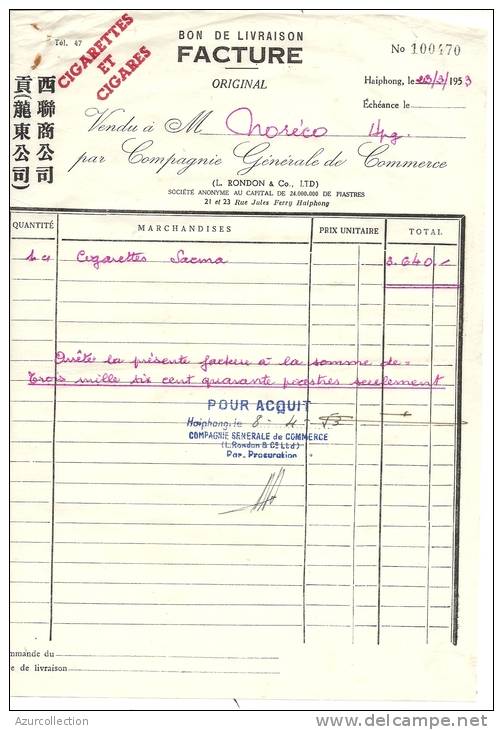 Tél. 47
CIGARETTES
ET
CIGARES
BON DE LIVRAISON
FACTURE
ORIGINAL
No 100470
Haiphong, le 23/3/1953
Échéance le
西聯商公司
貢(龍東公司)
Vendu à M Noréco Hpg.
par Compagnie Générale de Commerce
(L. RONDON & Co., LTD)
SOCIÉTÉ ANONYME AU CAPITAL DE 24.000.000 DE PIASTRES
21 et 23 Rue Jules Ferry Haiphong
QUANTITÉ MARCHANDISES PRIX UNITAIRE TOTAL
1 c/ Cigarettes Sacma 3.640.-
Arrêté la présente facture à la somme de=
Trois mille six cent quarante piastres seulement
POUR ACQUIT
Haiphong, le 8 - 4 - 53
COMPAGNIE GENERALE de COMMERCE
(L. Rondon & Co Ltd)
Par. Procuration
mmande du
e de livraison
Azurcollection
www.delcampe.net